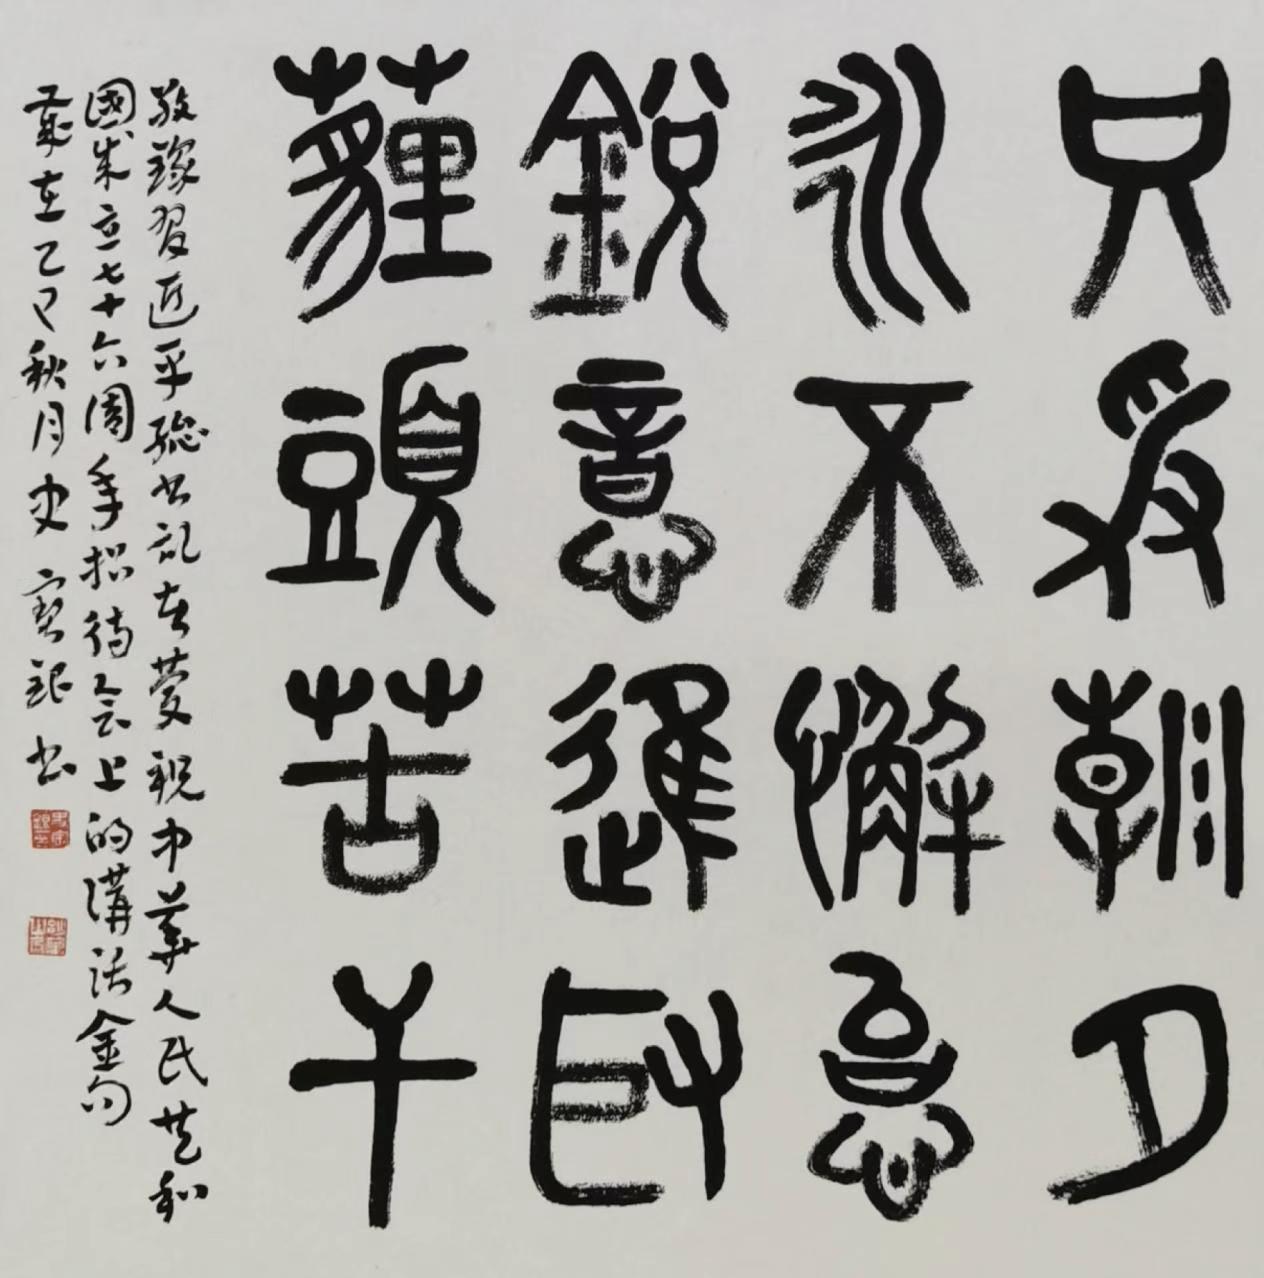 只爭朝夕
永不懈怠
銳意進取
薶頭苦干
敬録習近平總書記在慶祝中華人民共和
國成立七十六周年招待會上的講話金句
歲在乙巳秋月史寶銀書